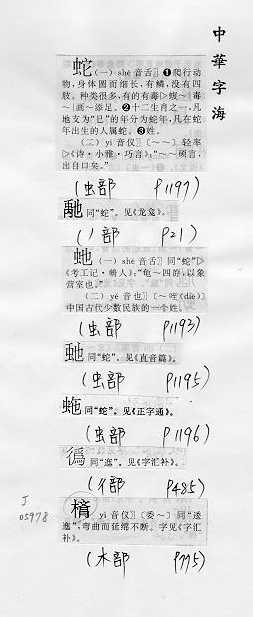 中華字海
蛇(一) shé 音舌〗❶爬行动
物,身体圆而细长,有鳞,没有四
肢。种类很多,有的有毒▷蝮~|毒
~|画~添足。❷十二生肖之一,凡
地支为"巳"的年分为蛇年,凡在蛇
年出生的人属蛇。❸姓。
(二) yí 音仪〗〔~~〕轻率
▷《诗·小雅·巧言》:"~~硕言,
出自口矣。"
(虫部 P1197)
同"蛇"。见《龙龛》。
(丿部 P21)
虵(一) shé 音舌〗同"蛇"▷
《考工记·辀人》:"龟~四斿,以象
营室也。"
(二) yě 音也〗〔~咥(dié)〕
中国古代少数民族的一个姓。
(虫部 P1193)
同"蛇"。见《直音篇》。
(虫部 P1195)
同"蛇"。见《正字通》。
(虫部 P1196)
同"逶"。见《字汇补》。
(彳部 P485)
J
05978
yí 音仪〗〔委~〕同"逶
迤",弯曲而延绵不断。字见《字汇
补》。
(木部 P775)